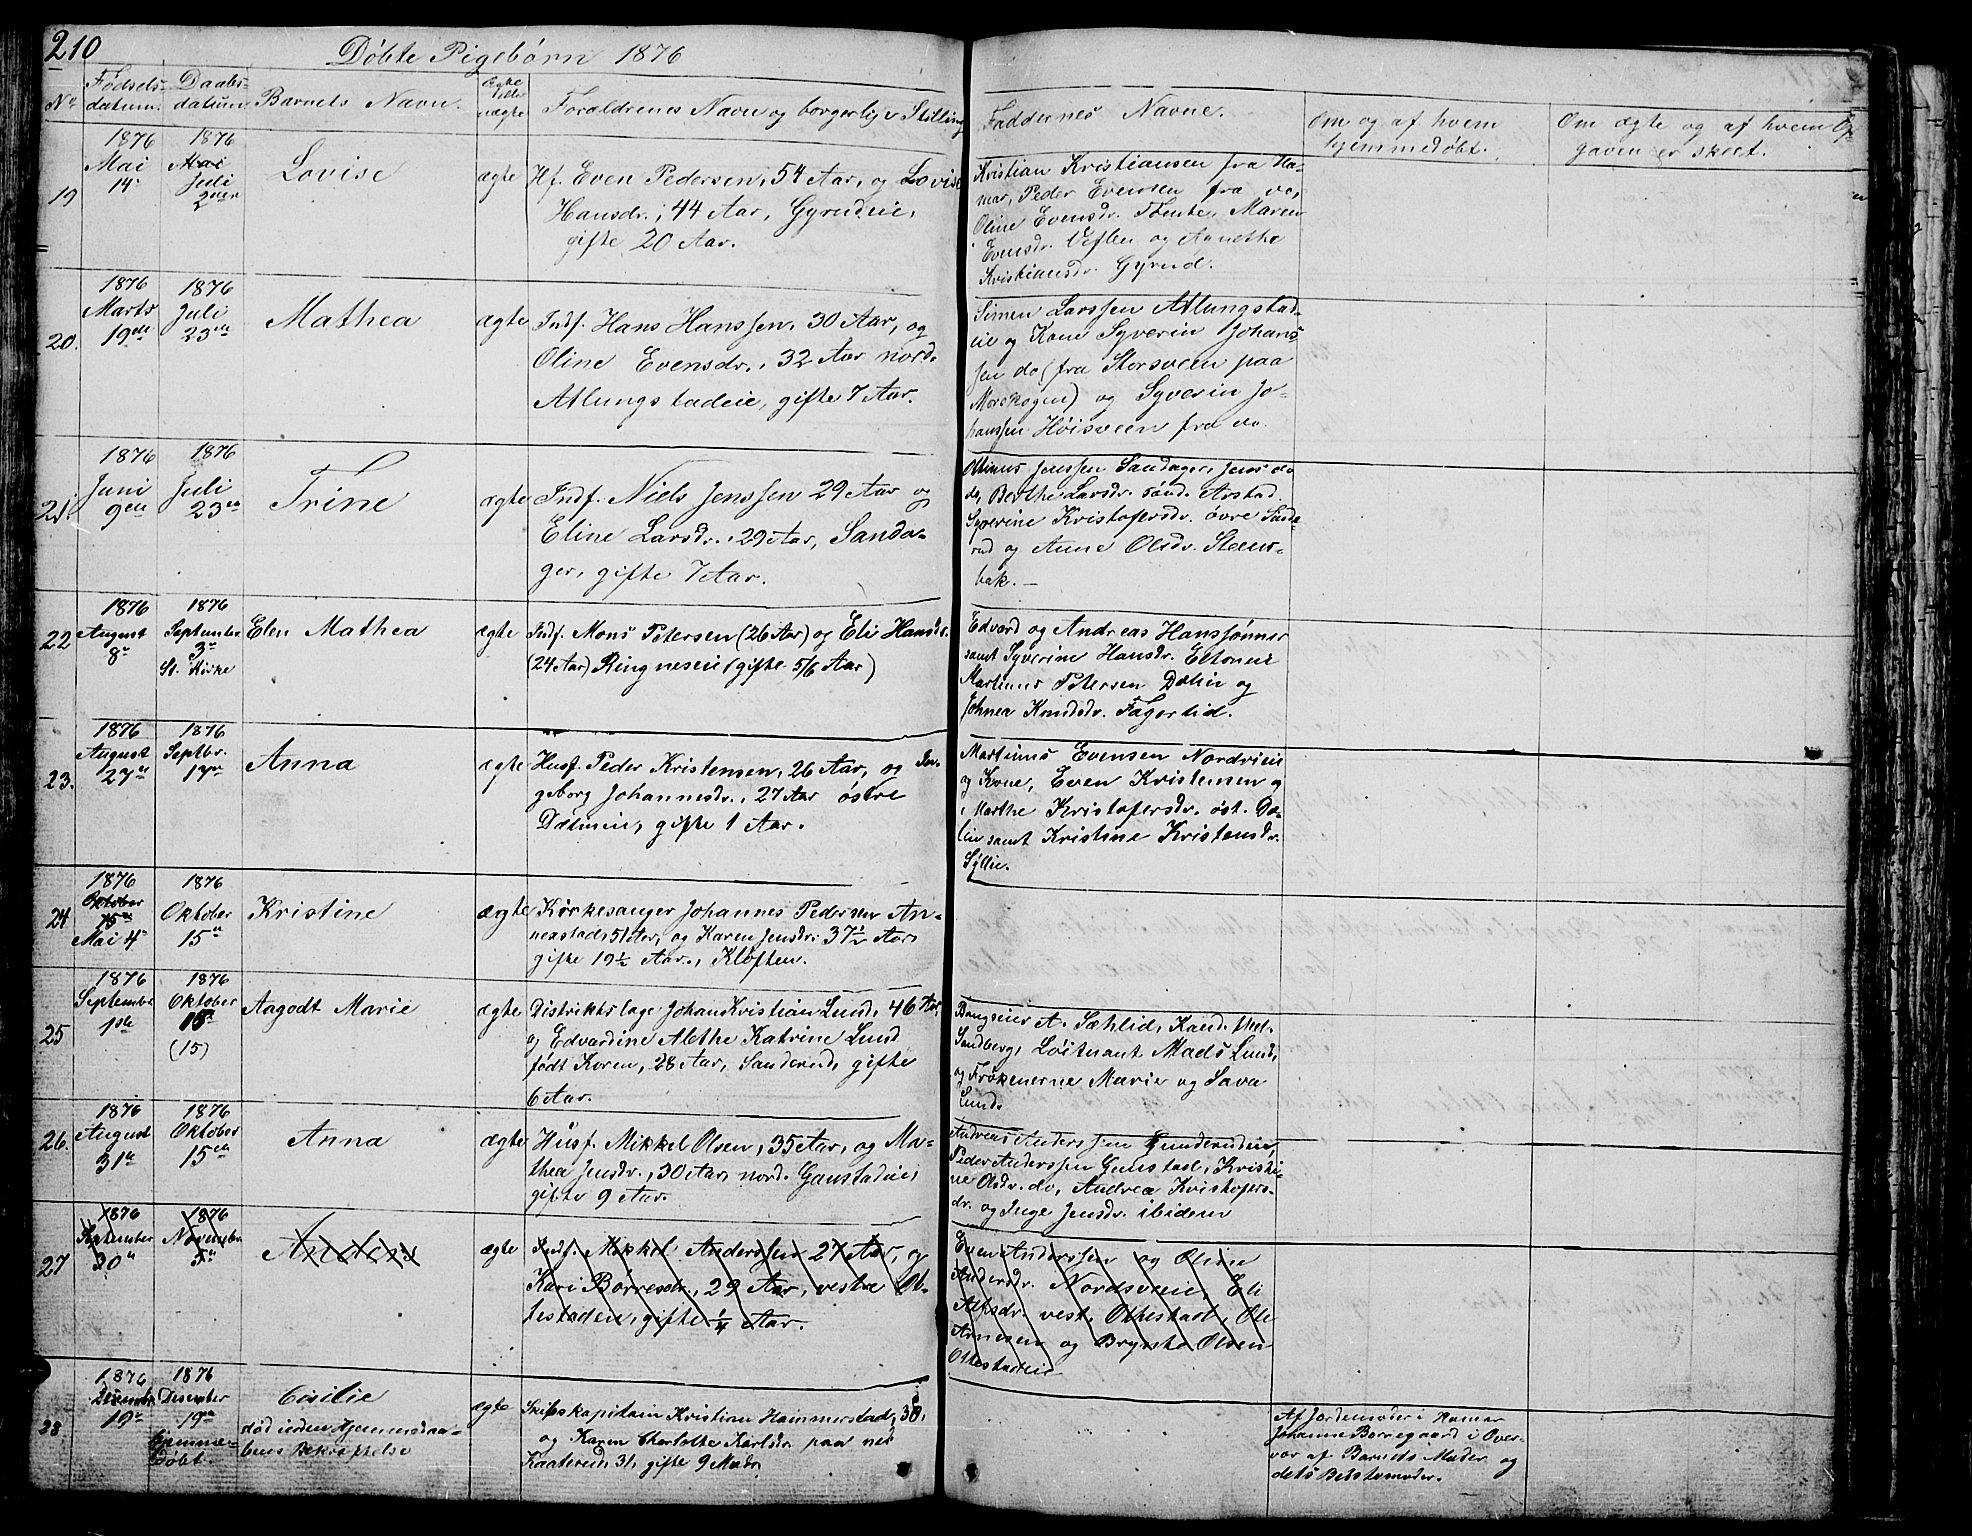 210
Döbte Pigebörn 1876
No
Fødsels-
datum.
Daabs-
datum
Barnets Navn.
Ægte
eller
uægte
Forældrenes Navn og borgerlige Stilling
Faddernes Navne.
Om og af hvem
hjemmedøbt.
Om ægte og af hvem Op-
gaven er skeet.
19
1876
Mai
14
1876
Mai
Juli
2den
Lovise
ægte
Hf. Even Pedersen, 54 Aar, og Lovise
Hansdr., 44 Aar, Gyrudeie,
gifte 20 Aar.
Kristian Kristiansen fra Ha-
mar, Peder Evensen fra do,
Oline Evensdr. Tomte, Maren
Evensdr. Veflen og Annethe
Kristiansdr. Gyrud.
20.
1876
Marts
19de
1876
Juli
23de
Mathea
ægte
Indf. Hans Hanssen, 30 Aar, og
Oline Evensdr., 32 Aar nord.
Atlungstadeie, gifte 7 Aar.
Simen Larssen Atlungstad-
eie og Kone Syverin Johans-
sen do (fra Storsveen paa
Moreskogen) og Syverin Jo-
hanssen Høisveen fra do.
21.
1876
Juni
9de
1876
Juli
23de
Trine
ægte
Indf. Niels Jenssen 29 Aar og
Eline Larsdr., 29 Aar, Sanda-
ger, gifte 7 Aar.
Ottinus Jenssen Sandager, Jens do
do, Berthe Larsdr. sönd. Arstad.
Syverine Kristofersdr. övre Sande-
rud og Anne Olsdr. Steens-
bak. —
22
1876
August
8de
1876
September
3de
St. Kirke
Elen Mathea
ægte
Indf. Mons Petersen (26 Aar) og Eli Hansdr.
(24 Aar) Ringneseie (gifte 5/6 Aar)
Edvard og Andreas Hanssönner
samt Syverine Hansdr. Eltoneie
Martinus Petersen Dælin og
Johnea Knudsdr. Fagerlid.
23.
1876
August
27de
1876
Septbr.
17de
Anna
ægte
Husf. Peder Kristensen, 26 Aar, og In-
geborg Johannesdr., 27 Aar östre
Dælineie, gifte 1 Aar.
Martinus Evensen Nordvieie
og Kone, Even Kristensen og
Marthe Kristofersdr. öst. Dæ-
lin samt Kristine Kristensdr.
Syllie.
24
1876
Oktober
15de
Mai 4de
1876
Oktober
15de
Kristine
ægte
Kirkesanger Johannes Pedersen An-
nexstad, 51 Aar, og Karen Jensdr. 37½ Aar,
gifte 19½ Aar., Klöften.
25
1876
September
1ste
1876
Oktober
15de
(15)
Aagodt Marie
ægte
Distriktslæge Johan Kristian Lund, 46 Aar,
og Edvardine Alethe Katrine Lund
født Koren, 28 Aar, Sanderud, gifte
6 Aar.
A. Sæhlid, Kand. theol.
Sandberg, Löitnant Mads Lund,
og Frökenerne Marie og Sava
Lund.
26.
1876
August
31de
1876
Oktober
15de
Anna
ægte
Husf. Mikkel Olsen, 35 Aar, og Ma-
thea Jensdr., 30 Aar, nord. Gaustadeie,
gifte 9 Aar.
Andreas Anderssen Gunderudeie,
Peder Anderssen Gaustad, Kristi-
ne Olsdr. do, Andrea Kristofers-
dr. og Inge Jensdr. ibidem
27
1876
September
30de
1876
November
5de
Anders
ægte
Indf. Mikkel Anderssen 27 Aar, og
Kari Börresdr., 29 Aar, vestre Ot-
testaden, gifte ¼ Aar.
Even Anderssen og Oline
Andersdr. Nordsveeie, Eli
Alfsdr. vest. Ottestad, Ole
Arnesen og Brynte Olsen
Ottestadeie
28
1876
December
19de
1876
December
19de
Hjemme-
döbt.
Cisilie
död inden Hjemmedaa-
bens Bekræftelse
ægte
Skibskapitain Kristian Hammerstad, 38,
og Karen Charlotte Karlsdr. paa ned.
Kaaterud, 31, gifte 9 Mndr.
Af Jordemoder i Hamar
Johanne Borregaard i Over-
vær af Barnets Moder og
dets Bedstemoder.